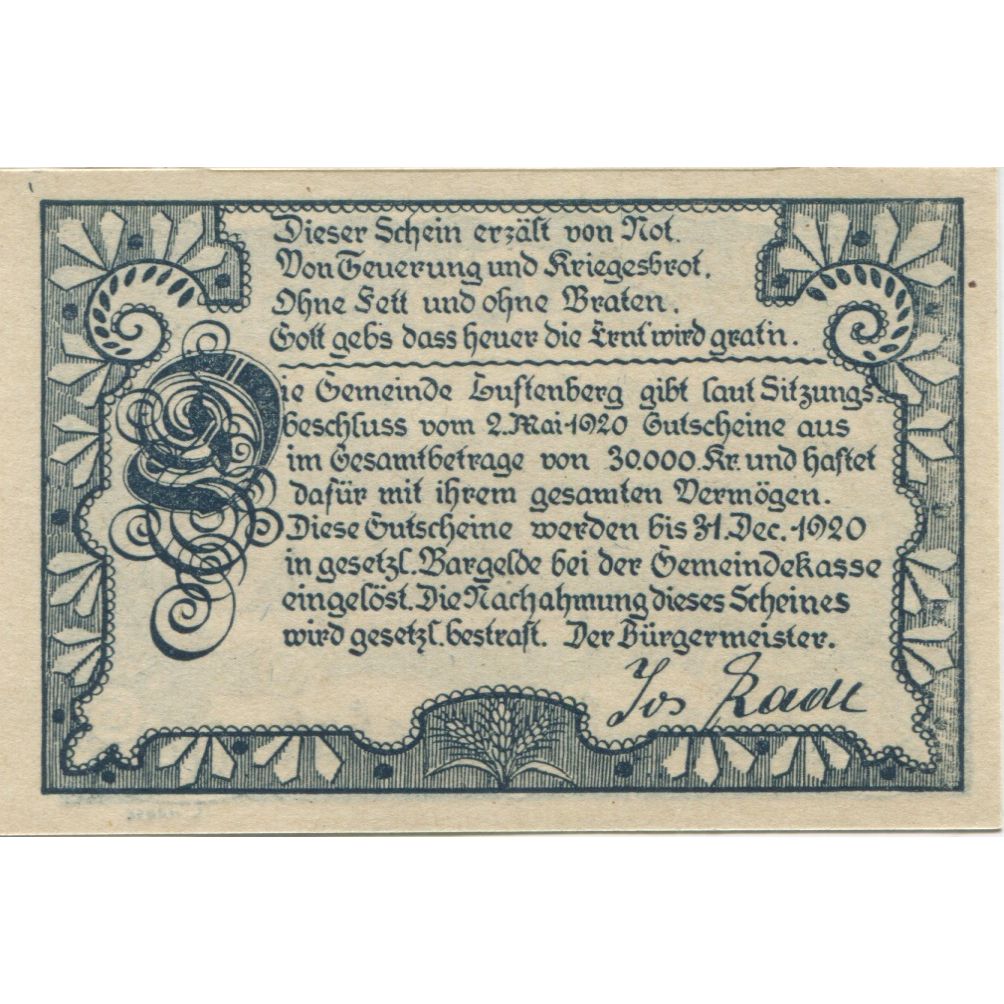 Dieser Schein erzält von Not.
Von Teuerung und Kriegesbrot,
Ohne Fett und ohne Braten.
Gott geb's dass heuer die Ernt' wird grat'n.
Die Gemeinde Luftenberg gibt laut Sitzungs=
beschluss vom 2. Mai 1920 Gutscheine aus
im Gesamtbetrage von 30.000.Kr. und haftet
dafür mit ihrem gesamten Vermögen.
Diese Gutscheine werden bis 31. Dec. 1920
in gesetzl. Bargelde bei der Gemeindekasse
eingelöst. Die Nachahmung dieses Scheines
wird gesetzl. bestraft. Der Bürgermeister.
Jos